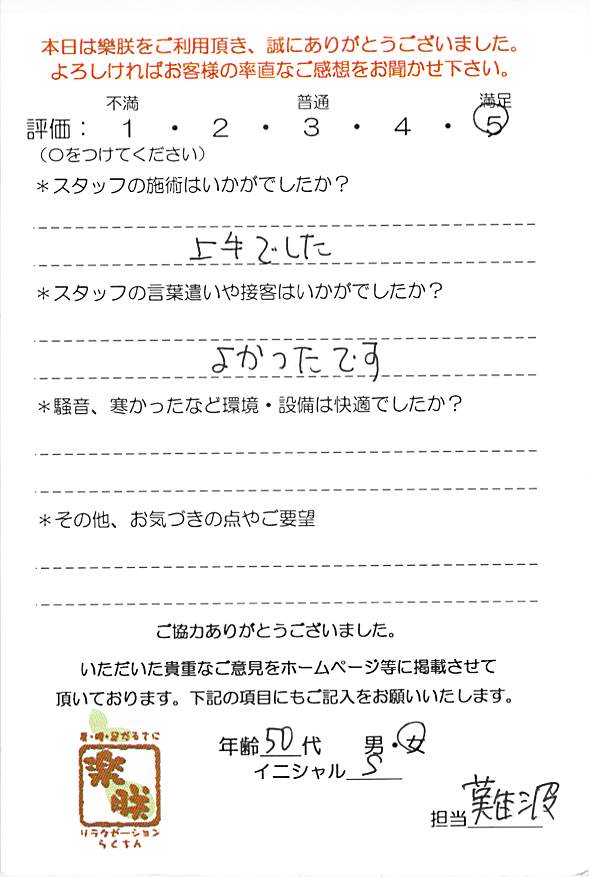 本日は樂朕をご利用頂き、誠にありがとうございました。
よろしければお客様の率直なご感想をお聞かせ下さい。
不満 普通 満足
評価： 1 ・ 2 ・ 3 ・ 4 ・ 5
（○をつけてください）
＊スタッフの施術はいかがでしたか？
上手でした
＊スタッフの言葉遣いや接客はいかがでしたか？
よかったです
＊騒音、寒かったなど環境・設備は快適でしたか？
＊その他、お気づきの点やご要望
ご協力ありがとうございました。
いただいた貴重なご意見をホームページ等に掲載させて
頂いております。下記の項目にもご記入をお願いいたします。
年齢50代 男・女
イニシャル S
担当 難波
肩・腰・足だるすに
楽朕
リラクゼーション
らくちん